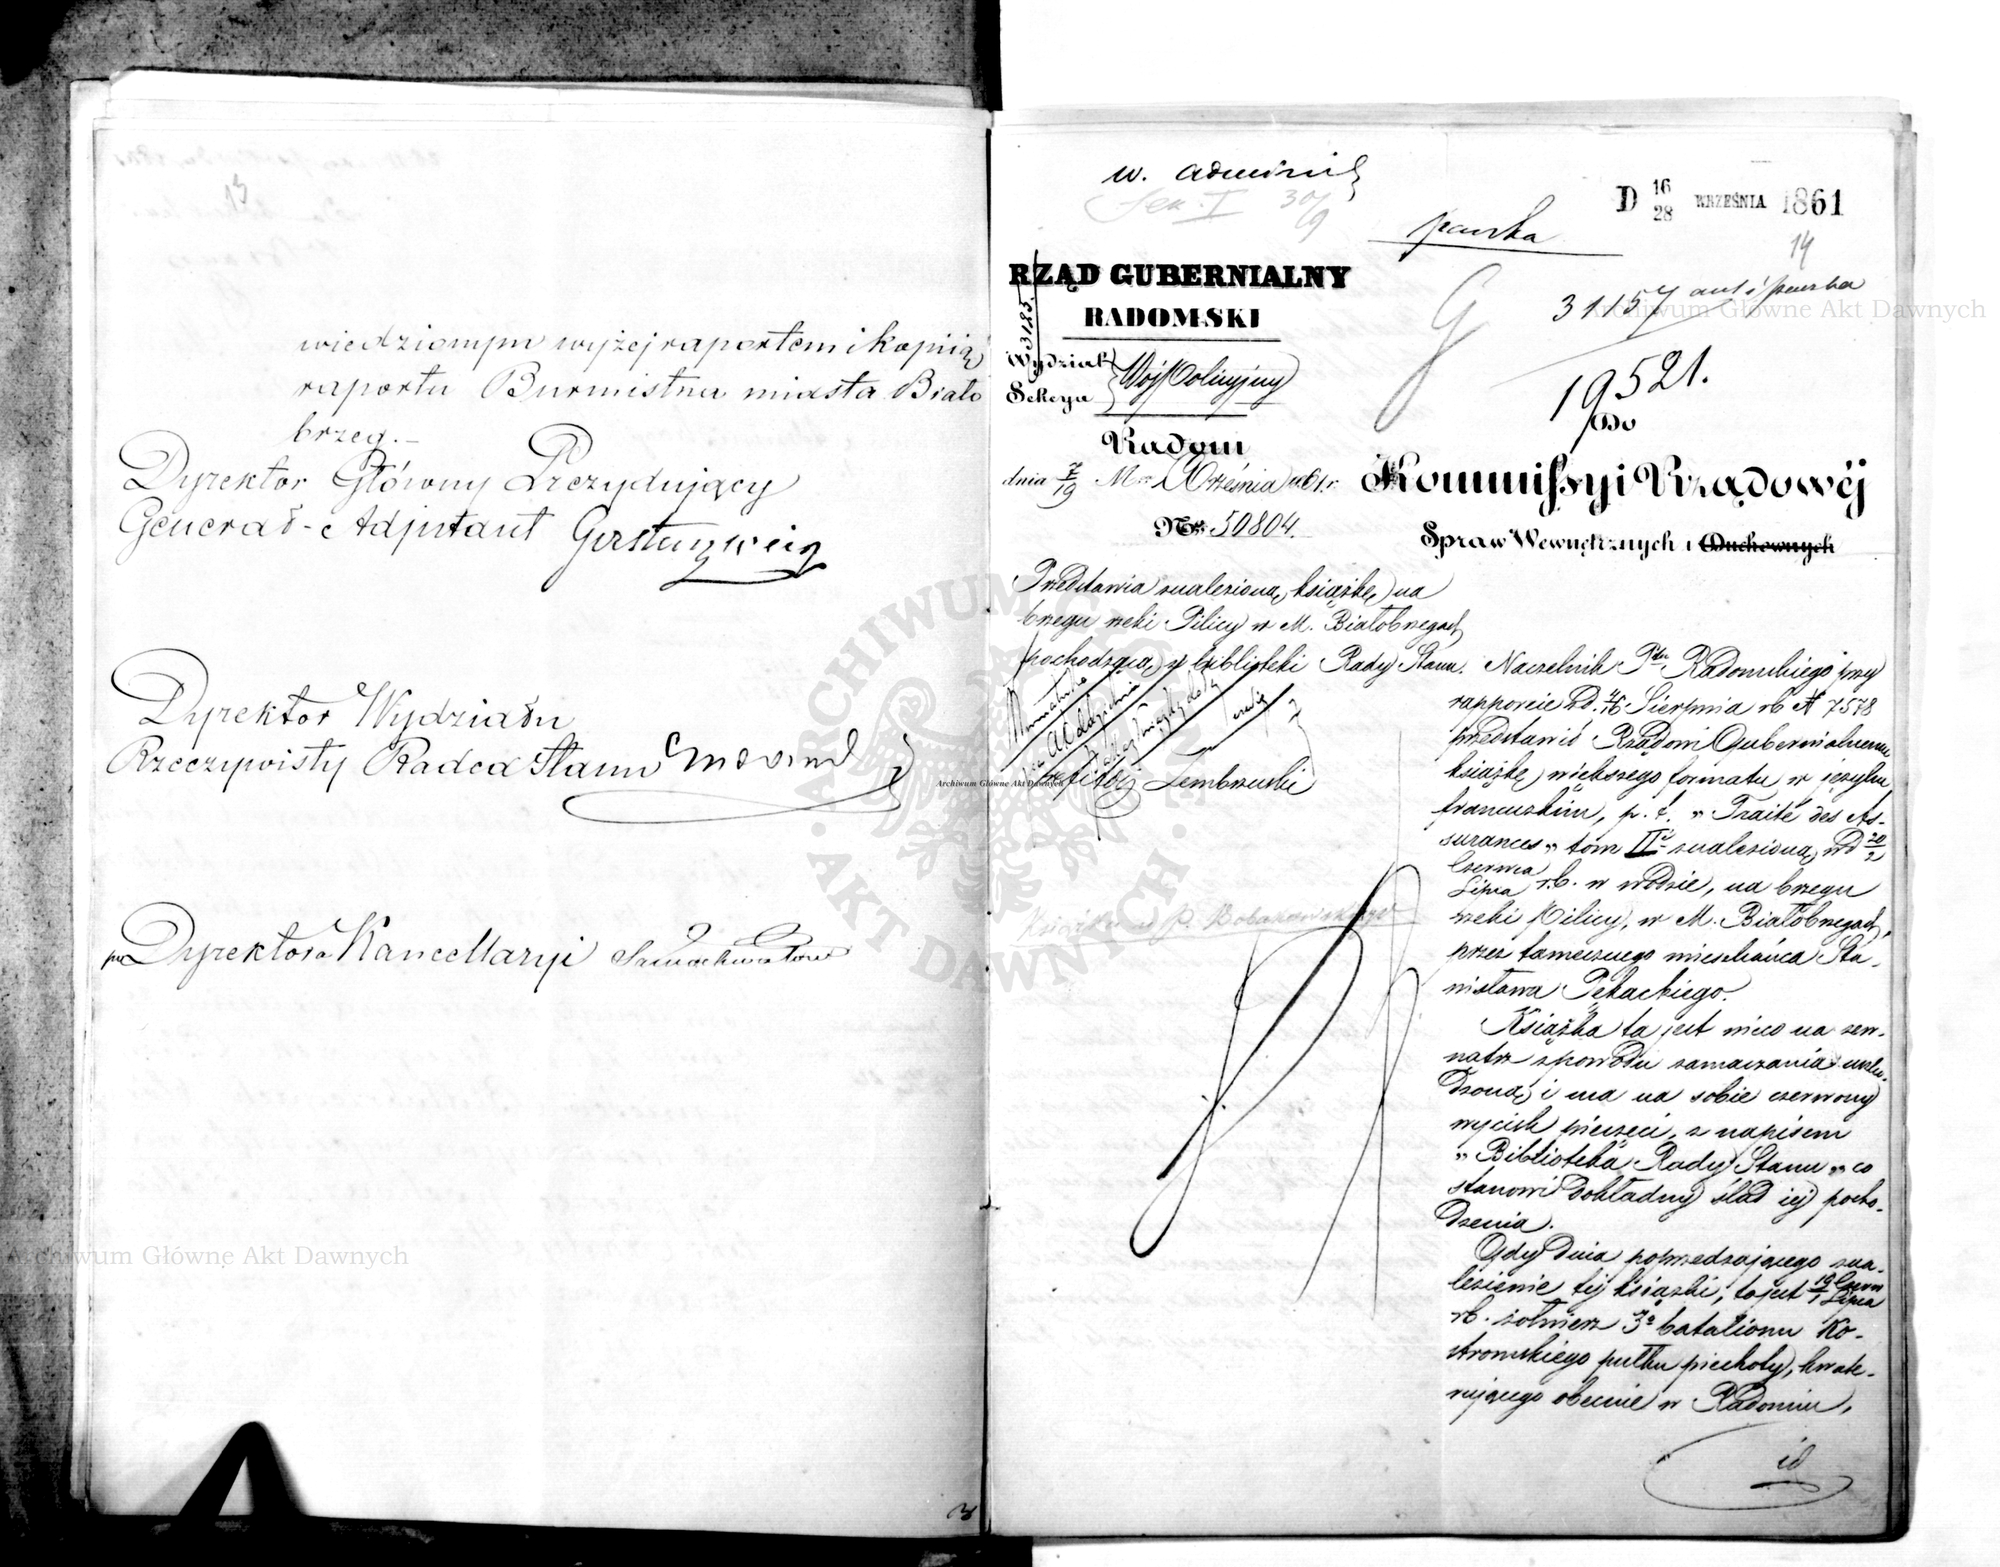 13
wiedzionym wyżej raportem i kopiią
raportu Burmistrza miasta Biało
brzeg.—
Dyrektor Główny Prezydujący
Generał-Adjutant Gerstenzweig
Dyrektor Wydziału
Rzeczywisty Radca Stanu
Dyrektora Kancellaryi
3
w. adminis
Sek. I 30/9
paczka
D 16/28 WRZEŚNIA 1861
14
31157
19521.
RZĄD GUBERNIALNY
RADOMSKI
3125.
Wydział Woj Policyjny
Sekcya
Radom
dnia 7/19 M Września 1861 r.
Nr 50804.
Do
Kommissyi Rządowéj
Spraw Wewnętrznych i Duchownych
Przedstawia znalezioną książkę na
brzegu rzeki Pilicy w M. Białobrzegach
pochodzącą z biblioteki Rady Stanu.
Lembrzuski
Książka u P.
Naczelnik Ptu Radomskiego przy
rapporcie z d. 4/16 Sierpnia rb N 7578
przedstawił Rządowi Gubernialnemu
książkę większego formatu w języku
francuzkim, p. t. „Traité des As-
surances„ tom II znalezioną w d 20/2
Czerwca/Lipca r.b. w wodzie, na brzegu
rzeki Pilicy, w M. Białobrzegach,
przez tamecznego mieszkańca Sta-
nisława Pękackiego.
Książka ta jest nieco na zew-
natrz z powodu zamaczania uszko-
dzoną i ma na sobie czerwony
wycisk pieczęci, z napisem
„Biblioteka Rady Stanu„ co
stanowi dokładny ślad jej pocho-
dzenia.
Gdy dnia poprzedzającego zna-
lezienie tej książki, to jest 19 Czerw/1 Lipca
rb. żołnierz 3o batalionu Ko-
stromskiego pułku piechoty, kwate-
rującego obecnie w Radomiu,
id
Archiwum Główne Akt Dawnych
Archiwum Główne Akt Dawnych
Archiwum Główne Akt Dawnych
ARCHIWUM GŁÓWNE AKT DAWNYCH